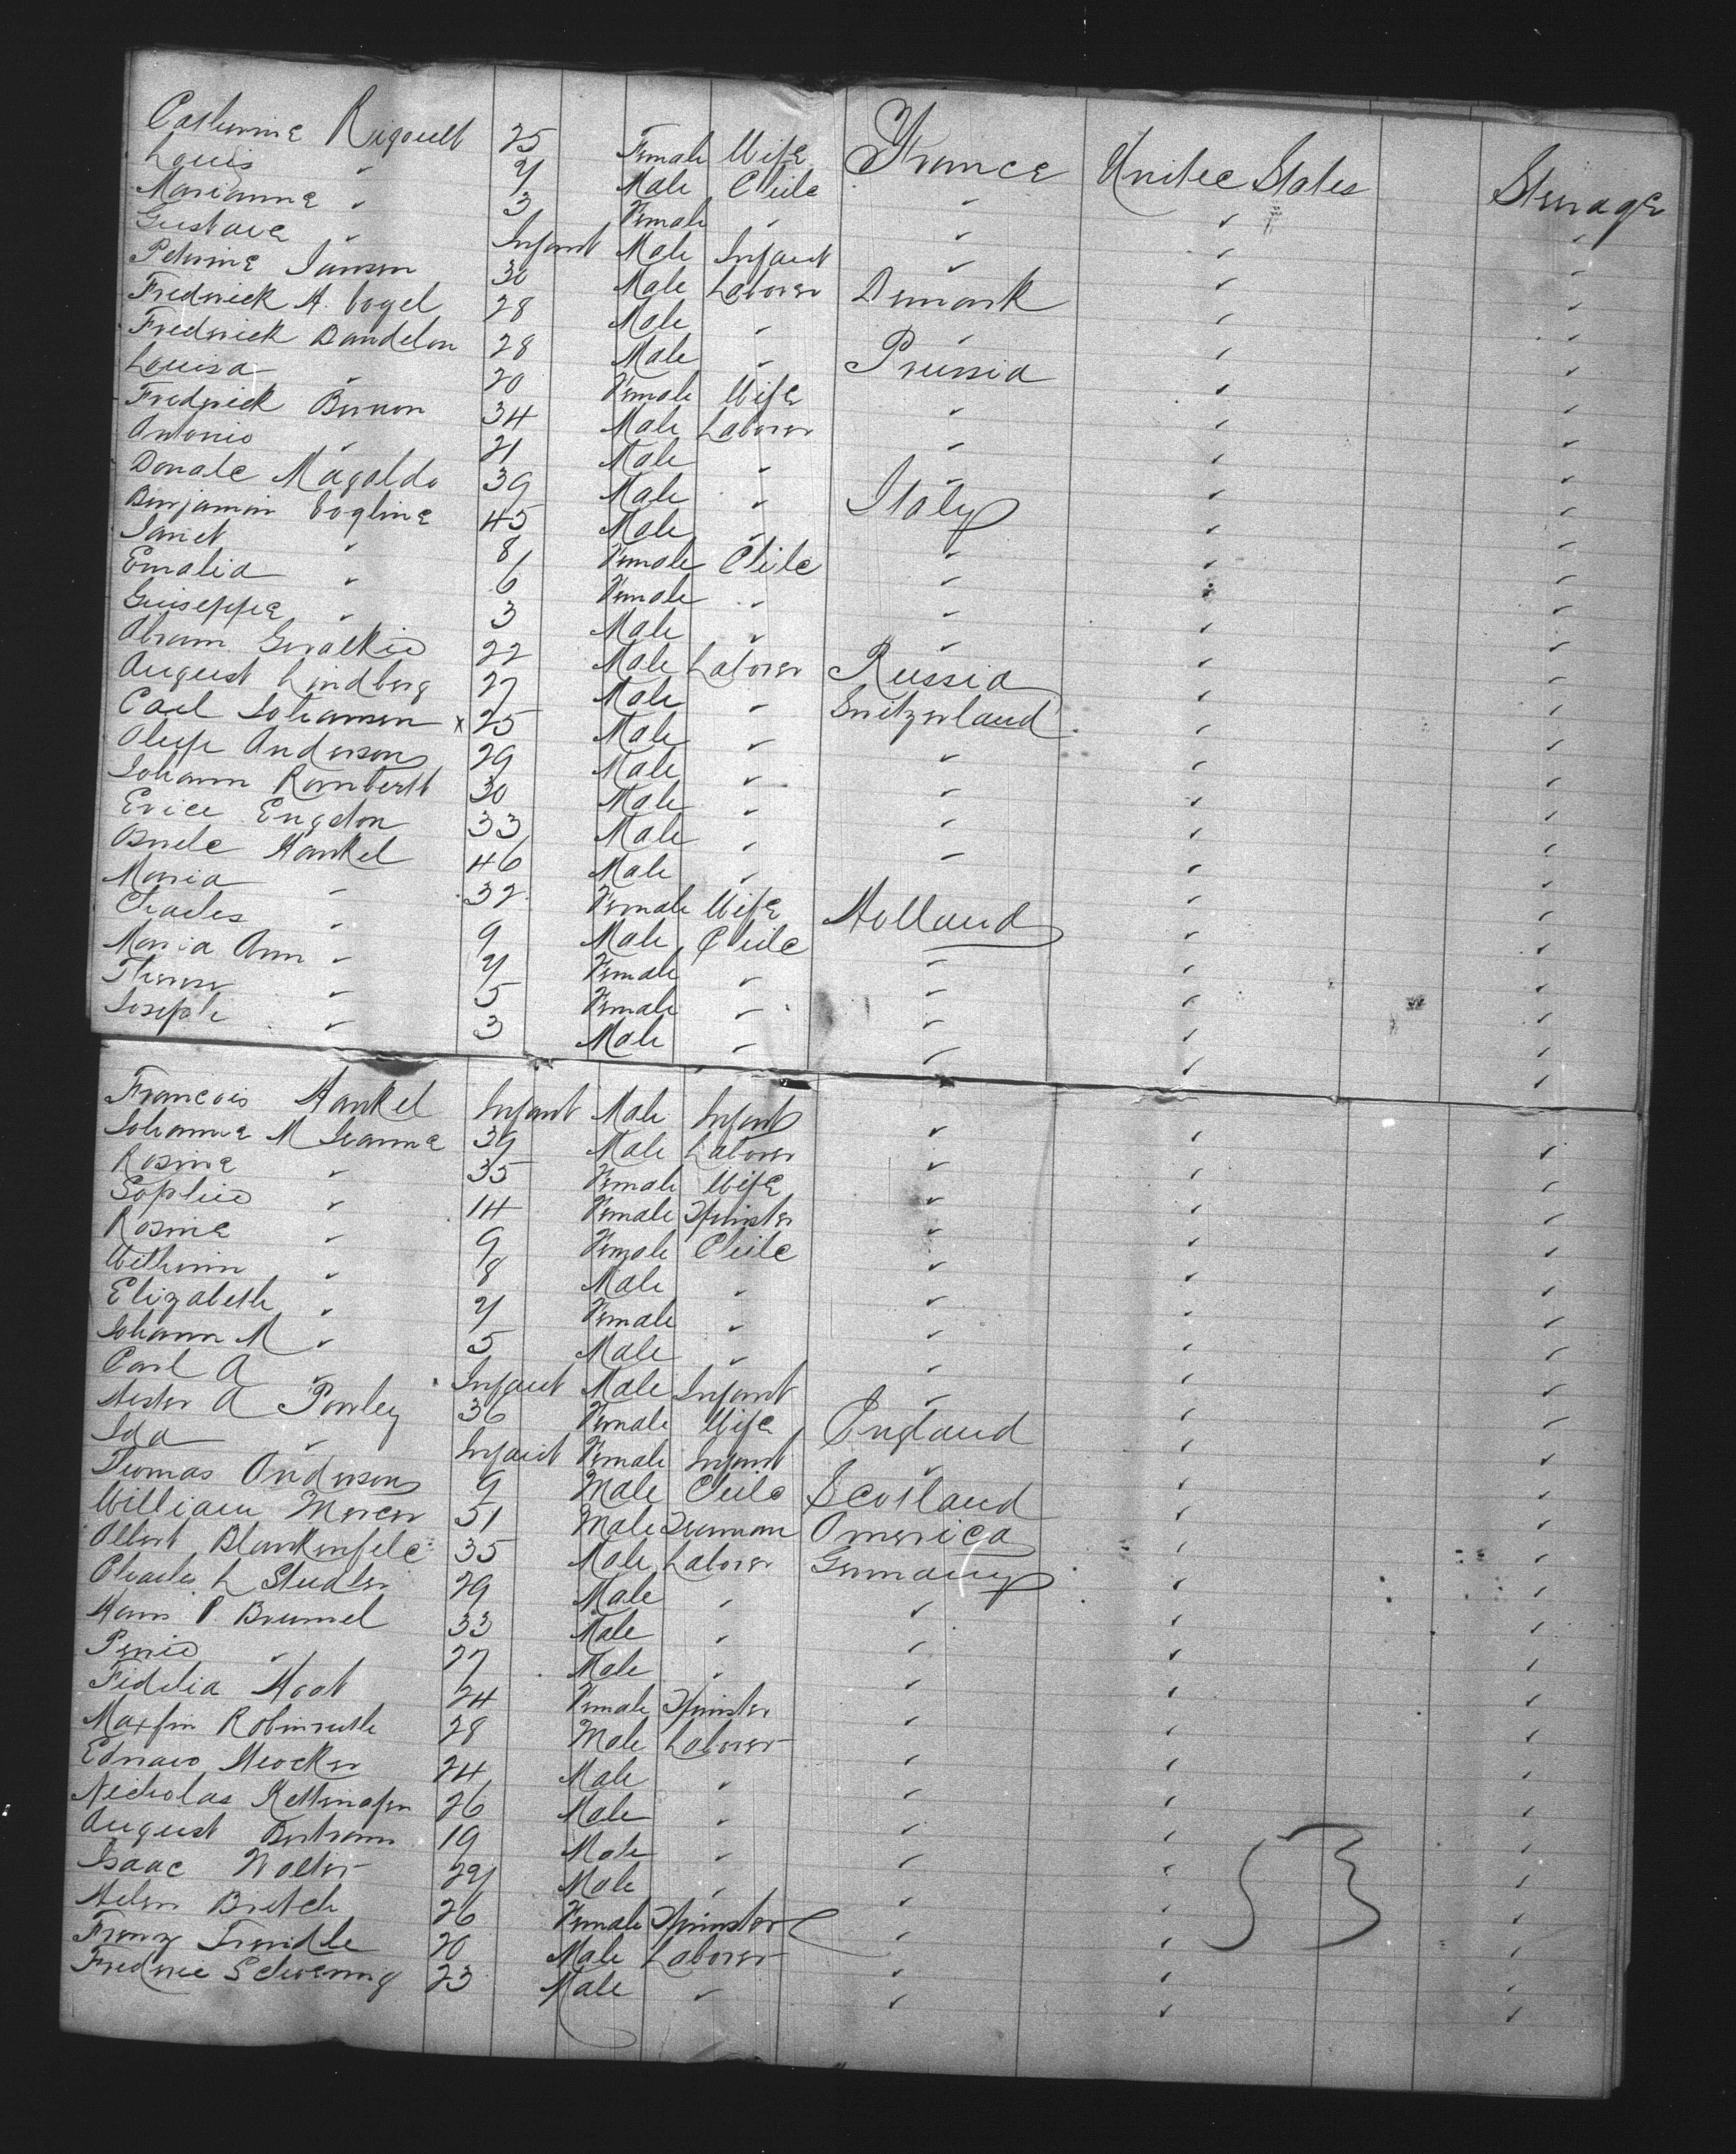 Catherine Rigoult 25 Female Wife France United States Steerage
Louis " 4 Male Child " " "
Marianne " 3 Female " " " "
Gustave " Infant Male Infant " " "
Petrine Jansen 30 Male Laborer Denmark " "
Frederick A. Vogel 28 Male " " " "
Frederick Bandelon 28 Male " Prussia " "
Louisa " 20 Female Wife " " "
Frederick Bernon 34 Male Laborer " " "
Antonio " 21 Male " " " "
Donald Magaldo 39 Male " Italy " "
Benjamin Vogline 45 Male " " " "
Janet " 8 Female Child " " "
Emalia " 6 Female " " " "
Guiseppe " 3 Male " " " "
Abram 22 Male Laborer Russia " "
August Lindberg 27 Male " Switzerland " "
Carl Johansen x 25 Male " " " "
Oluf Anderson 29 Male " " " "
Johann Rambertt 30 Male " " " "
Erice Engdon 33 Male " " " "
Hankel 46 Male " " "
Maria " 32 Female Wife Holland " "
Charles " 9 Male Child " " "
Maria Ann " 4 Female " " " "
Theresa " 5 Female " " " "
Joseph " 3 Male " " " "
Francois Hankel Infant Male Infant " " "
Johanne M Jeanne 34 Male Laborer " " "
Rosine " 35 Female Wife " " "
Sophie " 14 Female Spinster " " "
Rosine " 9 Female Child " " "
Wilhelm " 8 Male " " " "
Elizabeth " 4 Female " " " "
Johann M " 5 Male " " " "
Carl A " Infant Male Infant " " "
Hester A Powley 36 Female Wife England " "
Ida " Infant Female Infant " " "
Thomas Anderson 9 Male Child Scotland " "
William Mercer 51 Male Seaman America " "
Albert Blankenfeld 35 Male Laborer Germany " "
Charles L Studer 29 Male " " " "
Hans P. Brumel 33 Male " " " "
" 27 Male " " " "
Fidelia Hoot 24 Female Spinster " " "
Robinruth 28 Male Laborer " " "
Edward Stocker 24 Male " " " "
Nicholas Kettenofen 26 Male " " " "
August Bertram 19 Male " " " "
Isaac Wolter 24 Male " " " "
Helen Bretch 26 Female Spinster " " "
Franz Trendle 20 Male Laborer " " "
Schoennig 23 Male " " " "
53